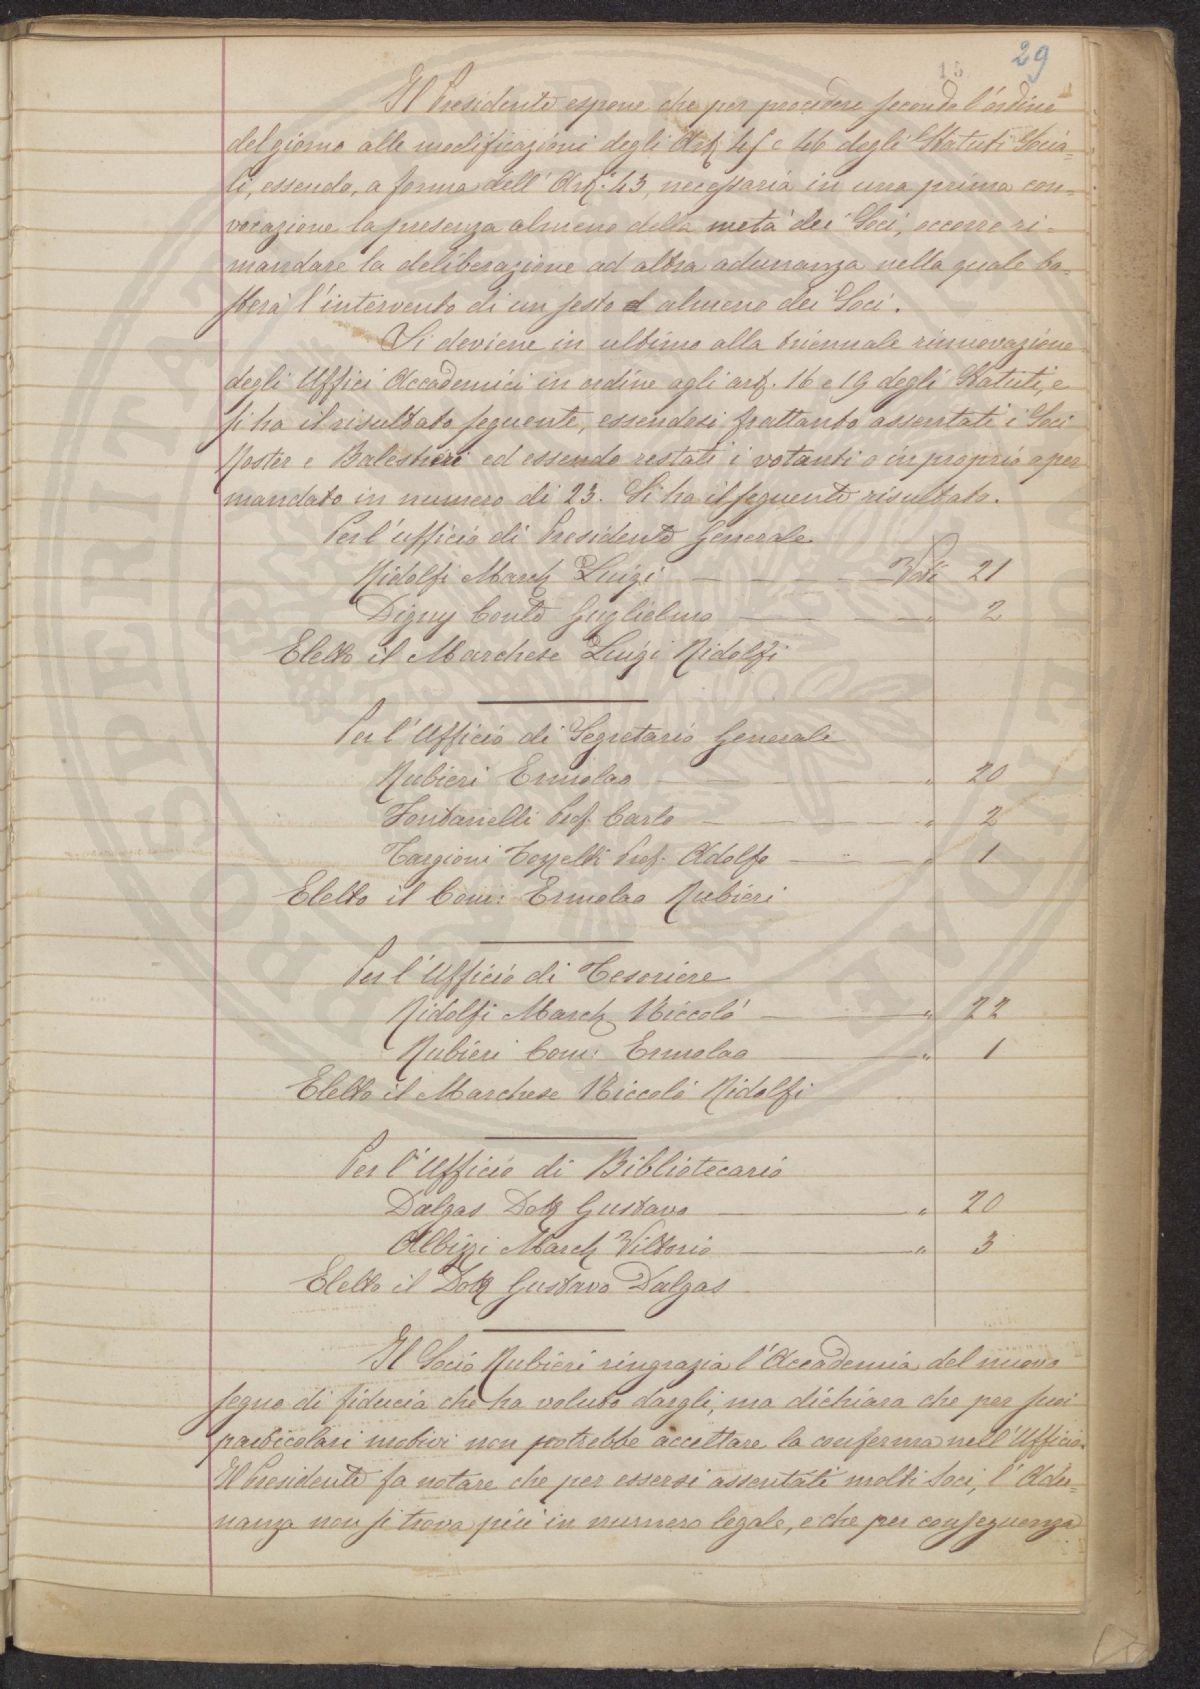 29
15
Il Presidente espone che per procedere secondo l'ordine
del giorno alle modificazioni degli Art. 45 e 46 degli Statuti Socia-
li, essendo, a forma dell'Art. 43, necessaria in una prima con-
vocazione la presenza almeno della metà dei Soci, occorre ri-
mandare la deliberazione ad altra adunanza nella quale ba-
sterà l'intervento di un sesto almeno dei Soci.
Si deviene in ultimo alla triennale rinnovazione
degli Uffici Accademici in ordine agli art. 16 e 19 degli Statuti, e
si ha il risultato seguente, essendosi frattanto assentati i Soci
Roster e Balestrieri ed essendo restati i votanti o in proprio o per
mandato in numero di 23. Si ha il seguente risultato.
Per l'ufficio di Presidente Generale
Ridolfi March Luigi — — — — Voti 21
Digny Conte Guglielmo — — — — " 2
Eletto il Marchese Luigi Ridolfi
Per l'Ufficio di Segretario Generale
Rubieri Ermolao — — — " 20
Fontanelli Prof. Carlo — — — " 2
Targioni Tozzetti Prof. Adolfo — — — " 1
Eletto il Com: Ermolao Rubieri
Per l'Ufficio di Tesoriere
Ridolfi March Niccolò — — — " 22
Rubieri Com: Ermolao — — — " 1
Eletto il Marchese Niccolò Ridolfi
Per l'Ufficio di Bibliotecario
Dalgas Dott Gustavo — — — " 20
Albizzi March Vittorio — — — " 3
Eletto il Dott Gustavo Dalgas
Il Socio Rubieri ringrazia l'Accademia del nuovo
segno di fiducia che ha voluto dargli, ma dichiara che per suoi
particolari motivi non potrebbe accettare la conferma nell'Ufficio.
Il Presidente fa notare che per essersi assentati molti Soci, l'Adu-
nanza non si trova più in numero legale, e che per conseguenza
PROSPERITATI PUBLICAE AUGENDAE